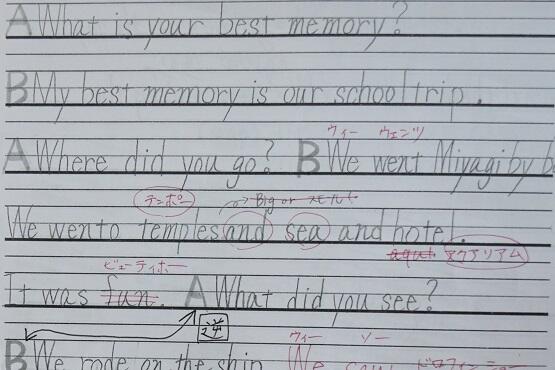 A What is your best memory?
B My best memory is our school trip.
ウィー ウェンツ
A Where did you go? B We went Miyagi by
テンポー Big or スモール
We wento temples and sea and hotel.
aqua アクアリアム
ビューティホー
It was fun. A What did you see?
逆
ウィー ソー
B We rode on the ship. We saw